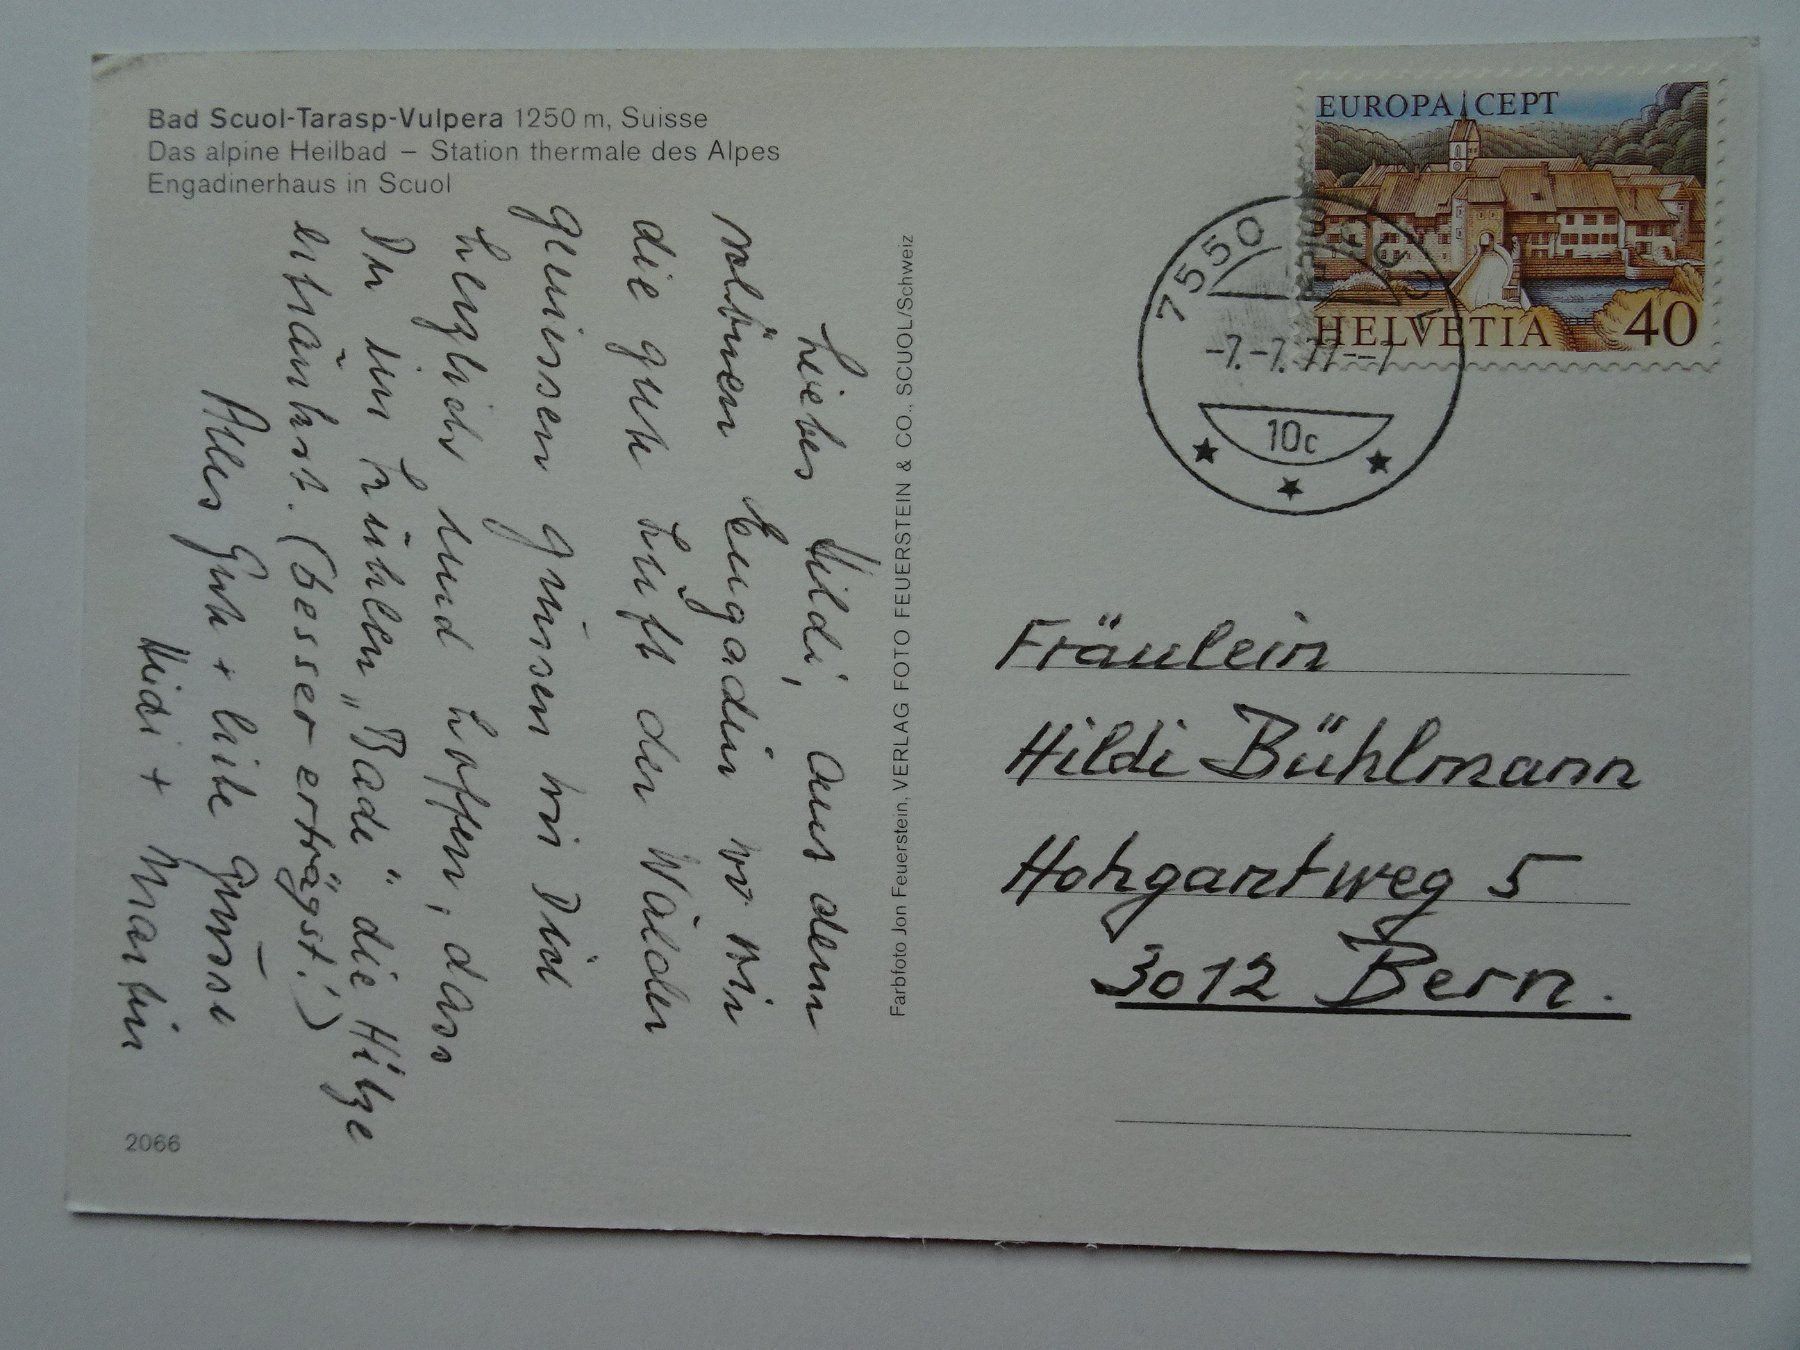 Bad Scuol-Tarasp-Vulpera 1250 m, Suisse
Das alpine Heilbad – Station thermale des Alpes
Engadinerhaus in Scuol
Liebes Hildi, aus dem
schönen Engadin wo wir
die gute Luft der Wälder
geniessen grüssen wir Dich
herzlich und hoffen, dass
Du im kühlen „Bade" die Hitze
erträgst. (besser erträgst!)
Alles Gute + liebe Grüsse
Heidi + Martin
2066
Farbfoto Jon Feuerstein, VERLAG FOTO FEUERSTEIN & CO., SCUOL/Schweiz
EUROPA CEPT
HELVETIA 40
7550 SCUOL
-7.-7.77--7
10c
Fräulein
Hildi Bühlmann
Hohgantweg 5
3012 Bern.